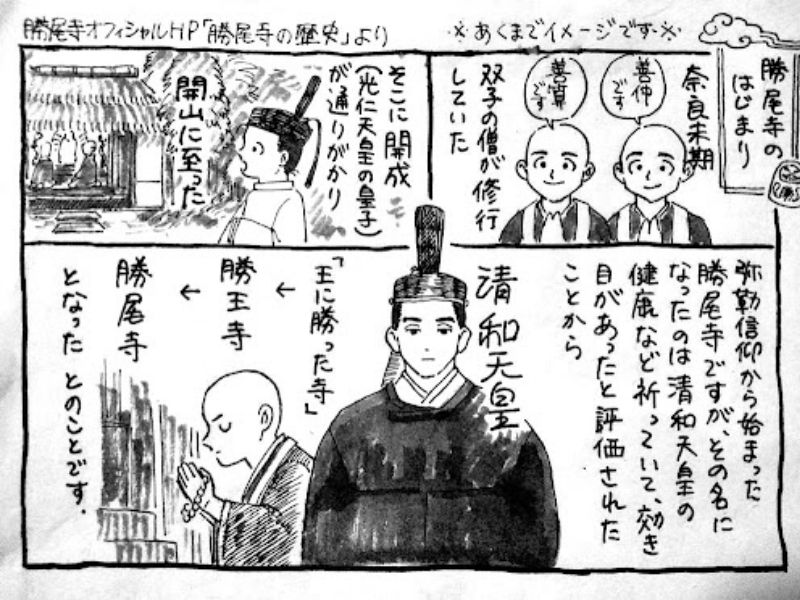 勝尾寺オフィシャルHP「勝尾寺の歴史」より
※あくまでイメージです※
勝尾寺の
はじまり
奈良末期
善仲
です
善算
です
双子の僧が修行
していた
そこに開成
(光仁天皇の皇子)
が通りがかり
開山に至った
弥勒信仰から始まった
勝尾寺ですが、その名に
なったのは清和天皇の
健康など祈っていて、効き
目があったと評価された
ことから
清和天皇
「王に勝った寺」
←
勝王寺
←
勝尾寺
となった とのことです。